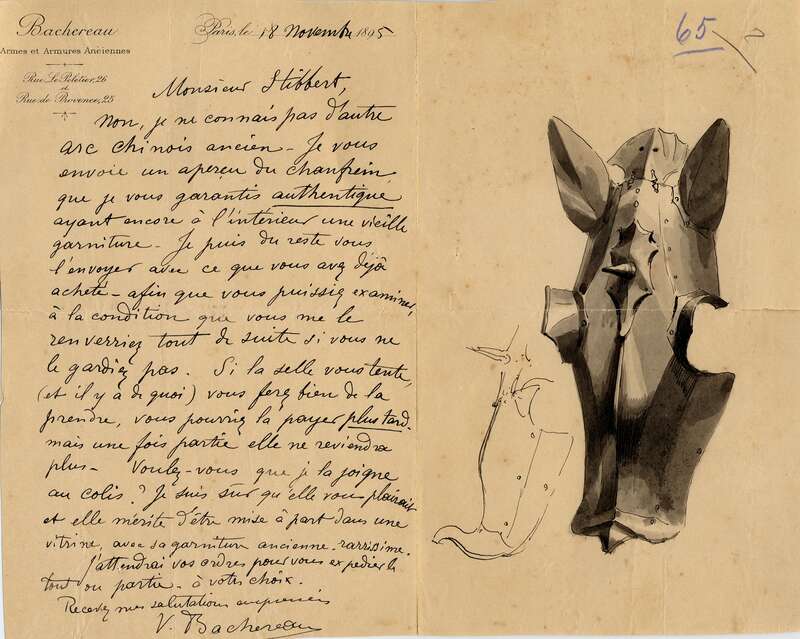 Bachereau
Armes et Armures Anciennes
Rue Le Peletier, 26
et
Rue de Provence, 25
Paris, le 18 Novembre 1895
65
Monsieur Stibbert,
Non, je ne connais pas d'autre
arc chinois ancien - Je vous
envoie un aperçu du chanfrein
que je vous garantis authentique
ayant encore à l'intérieur une vieille
garniture - Je puis du reste vous
l'envoyer avec ce que vous avez déjà
acheté - afin que vous puissiez examiner,
à la condition que vous me le
renverriez tout de suite si vous ne
le gardiez pas. Si la selle vous tente,
(et il y a de quoi) vous ferez bien de la
prendre, vous pourriez la payer plus tard.
mais une fois partie elle ne reviendra
plus - Voulez-vous que je la joigne
au colis ? Je suis sûr qu'elle vous plairait
et elle mérite d'être mise à part dans une
vitrine, avec sa garniture ancienne - rarissime.
J'attendrai vos ordres pour vous expédier le
tout ou partie - à votre choix.
Recevez mes salutations empressées
V. Bachereau